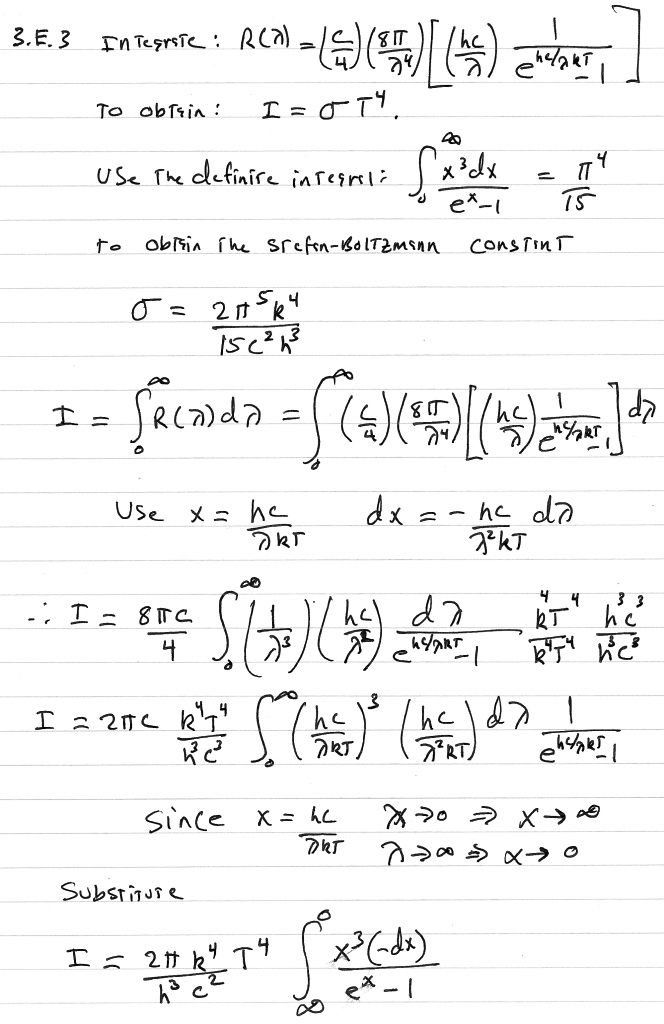 3.E.3 Integrate: R(λ) = (c/4)(8π/λ⁴)[(hc/λ) 1/(e^(hc/λkT) - 1)]
To obtain: I = σT⁴.
Use the definite integral: ∫₀^∞ x³dx/(eˣ-1) = π⁴/15
to obtain the Stefan-Boltzmann constant
σ = 2π⁵k⁴/15c²h³
I = ∫₀^∞ R(λ)dλ = ∫₀^∞ (c/4)(8π/λ⁴)[(hc/λ) 1/(e^(hc/λkT) - 1)] dλ
Use x = hc/λkT dx = - hc/λ²kT dλ
∴ I = 8πc/4 ∫₀^∞ (1/λ³)(hc/λ²) dλ/(e^(hc/λkT) - 1) k⁴T⁴/k⁴T⁴ h³c³/h³c³
I = 2πc k⁴T⁴/h³c³ ∫₀^∞ (hc/λkT)³ (hc/λ²kT) dλ 1/(e^(hc/λkT) - 1)
Since x = hc/λkT λ→0 ⇒ x→∞
λ→∞ ⇒ x→0
Substitute
I = 2πk⁴/h³c² T⁴ ∫_∞^0 x³(-dx)/(eˣ - 1)